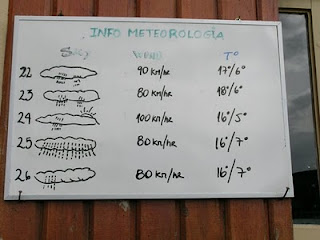 INFO METEOROLOGÍA
Sky WIND T°
22 90 km/hr 17°/6°
23 80 km/hr 18°/6°
24 100 km/hr 16°/5°
25 80 km/hr 16°/7°
26 80 km/hr 16°/7°